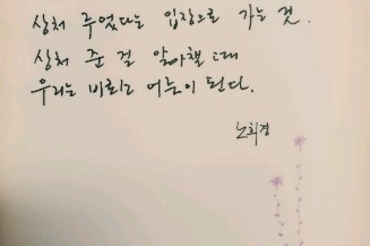 상처 주었다는 입장으로 가는 것.
상처 준 걸 알아챌 때
우리는 비로소 어른이 된다.
노희경